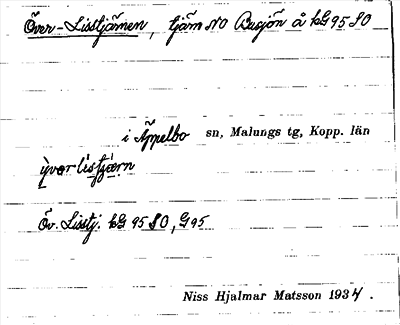 Över-Lisstjärnen, tjärn NO Busjön å kG 95 SO
i Äppelbo sn, Malungs tg, Kopp. län
Öv. Lisstj. kG 95 SO, G 95
Niss Hjalmar Matsson 1934.